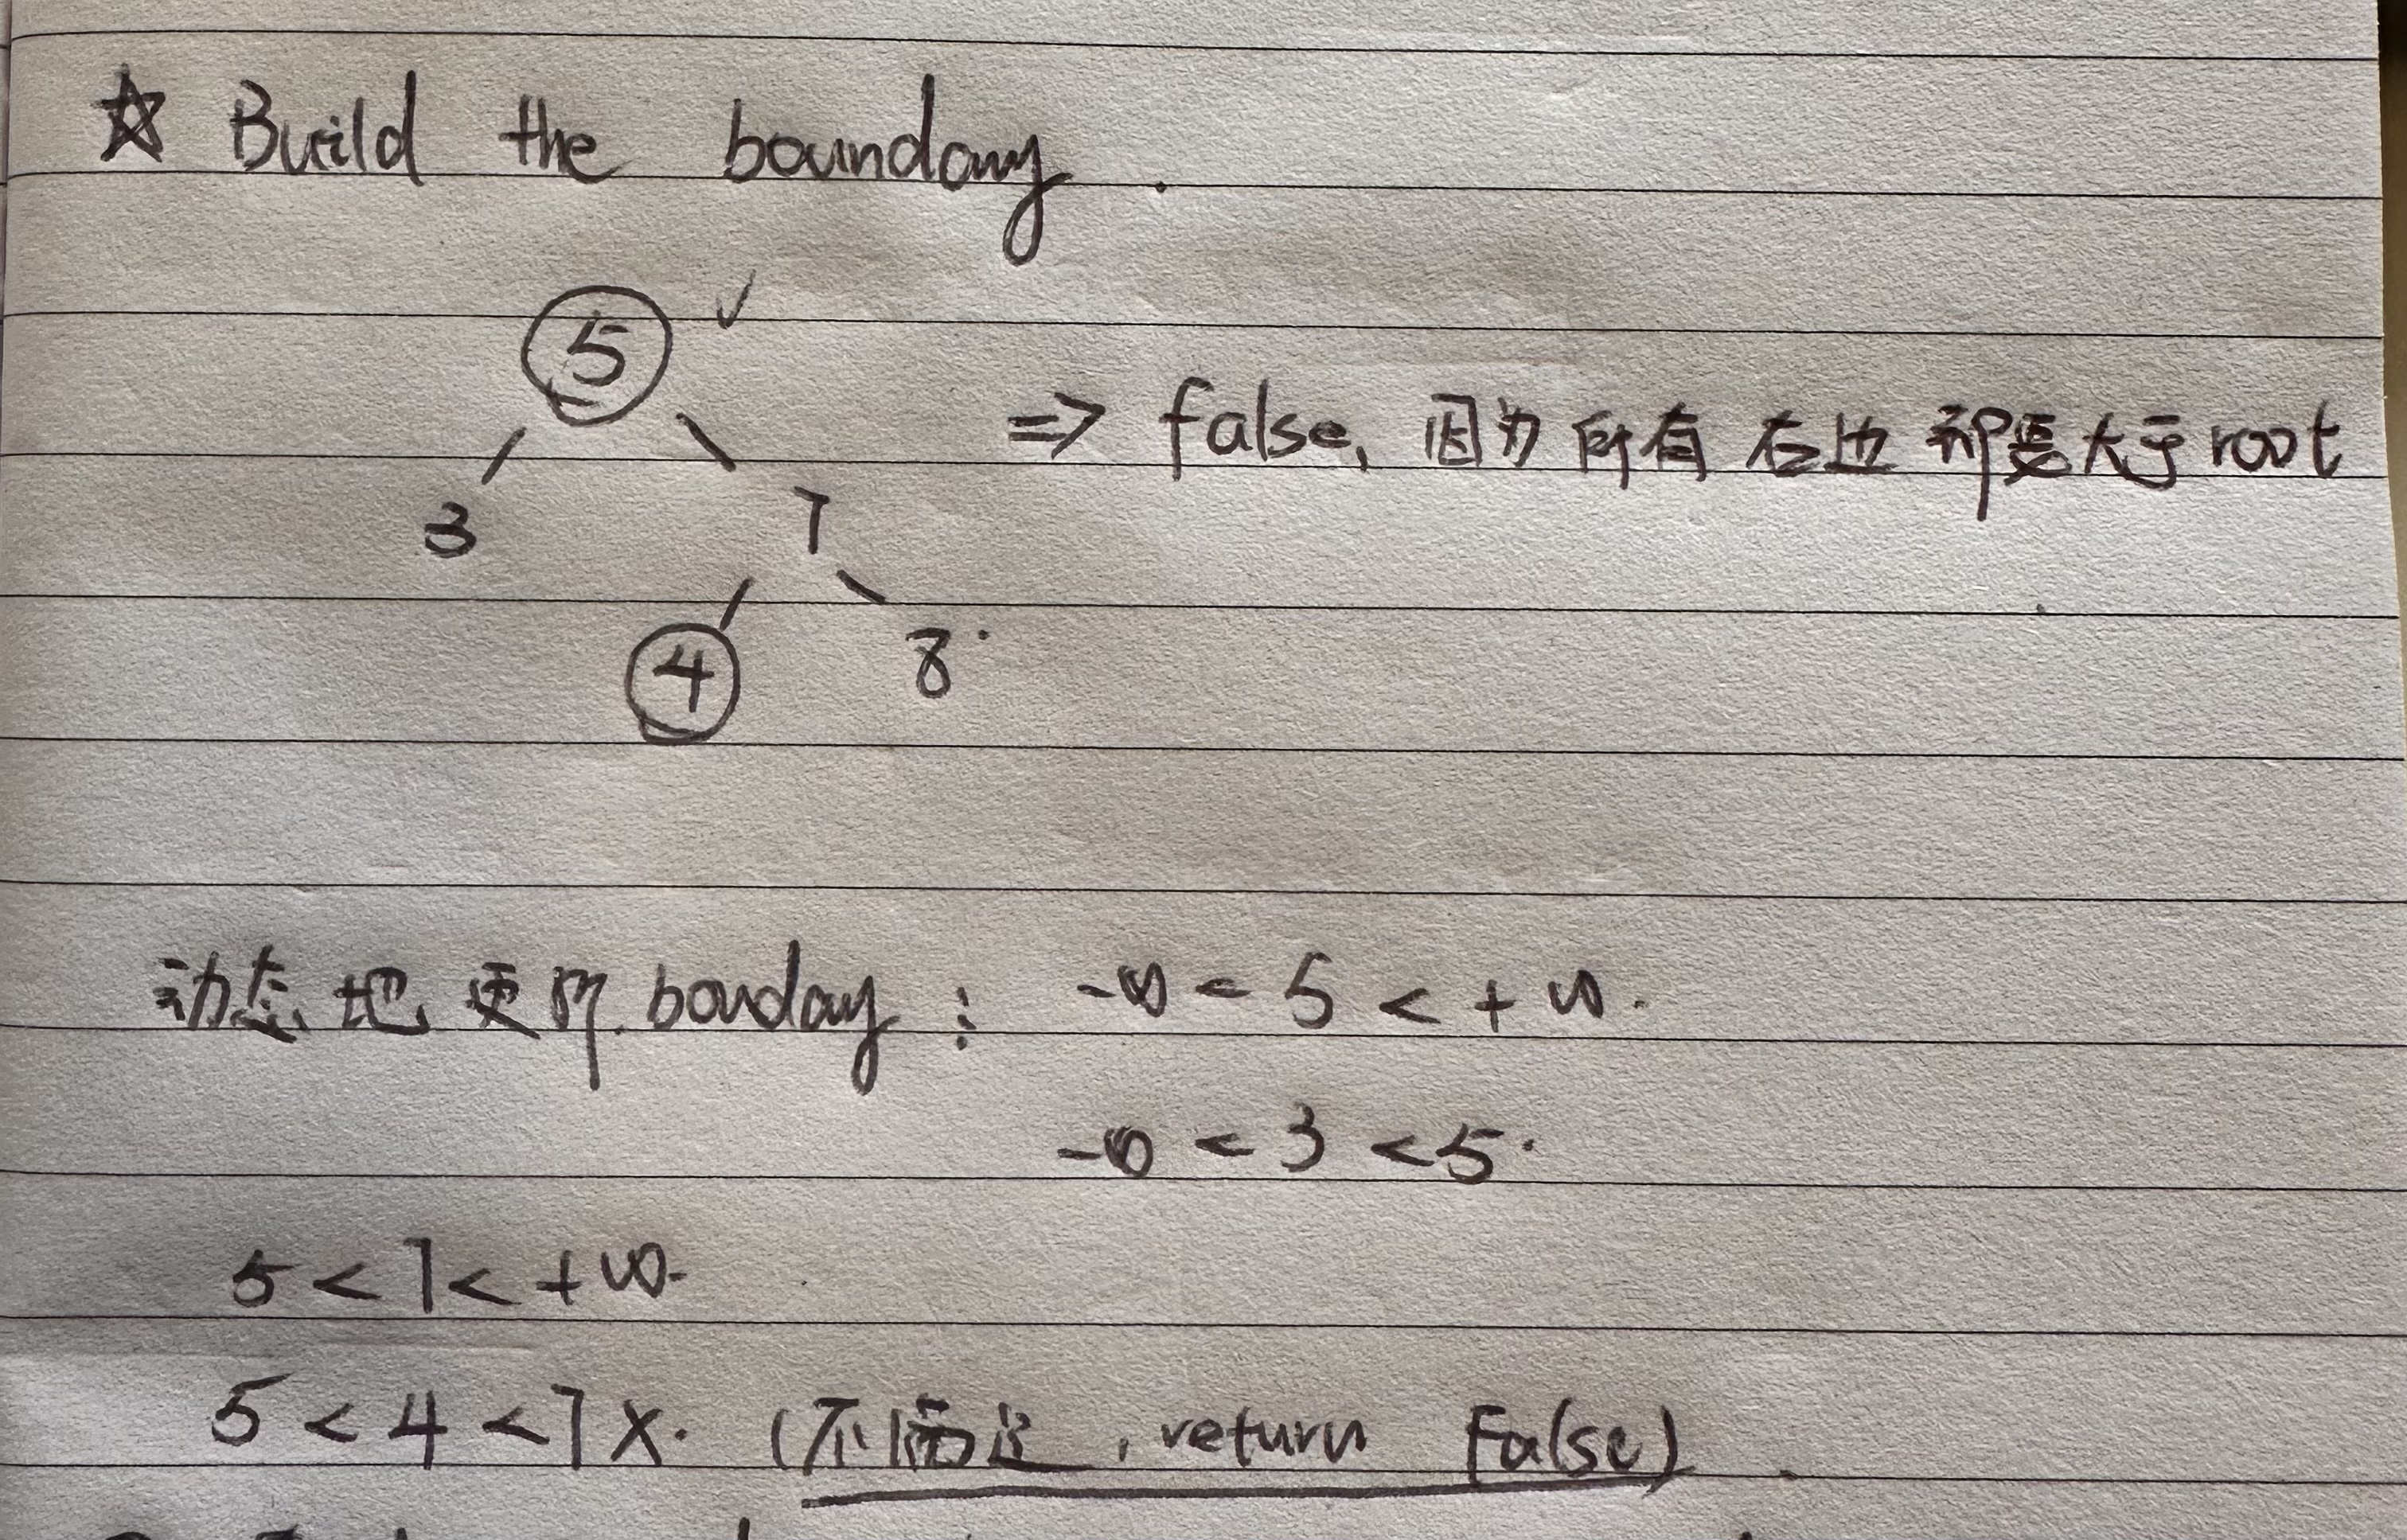 ☆ Build the boundary.
5 ✓
⇒ false, 因为所有右边都要大于root
3 7
4 8
动态地更新 bounday : -∞ < 5 < +∞.
-∞ < 3 < 5.
5 < 7 < +∞.
5 < 4 < 7 X. (不满足, return False)